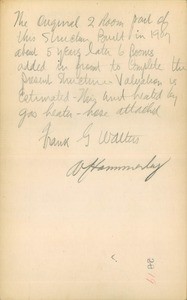 The Original 2 Room part of
this Structure Built in 1907
about 5 years later 6 Rooms
added in front to Complete the
present Structure. Valuation is
Estimated - This Unit heated by
gas heater - hose attached
Frank G Walters
Hammerlag